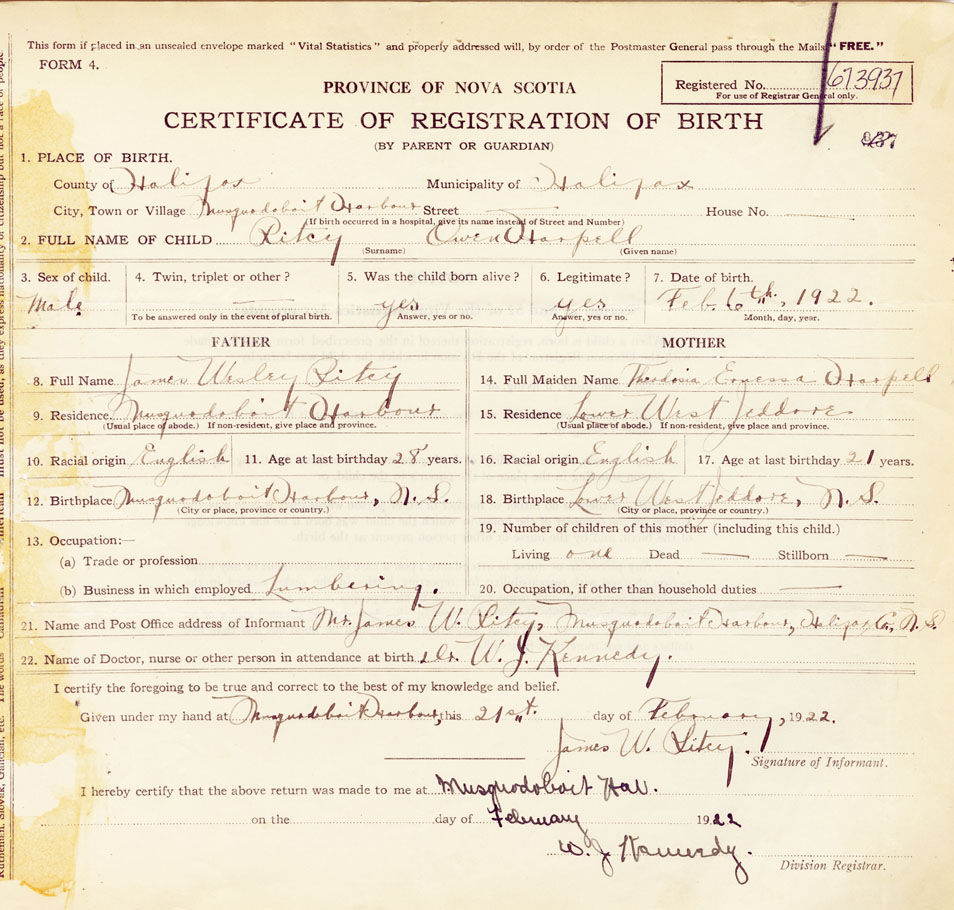 This form if placed in an unsealed envelope marked "Vital Statistics" and properly addressed will, by order of the Postmaster General pass through the Mails "FREE."
FORM 4.
PROVINCE OF NOVA SCOTIA
Registered No. 673937
For use of Registrar General only.
CERTIFICATE OF REGISTRATION OF BIRTH
(BY PARENT OR GUARDIAN)
1. PLACE OF BIRTH.
County of Halifax Municipality of Halifax
City, Town or Village Musquodoboit Harbour Street House No.
(If birth occurred in a hospital, give its name instead of Street and Number)
2. FULL NAME OF CHILD Ritcy Owen Harpell
(Surname) (Given name)
3. Sex of child. 4. Twin, triplet or other? 5. Was the child born alive? 6. Legitimate? 7. Date of birth.
Male yes yes Feb. 6th, 1922.
To be answered only in the event of plural birth. Answer, yes or no. Answer, yes or no. Month, day, year.
FATHER MOTHER
8. Full Name James Wesley Ritcy 14. Full Maiden Name Theodosia Ernessa Harpell
9. Residence. Musquodoboit Harbour 15. Residence Lower West Jeddore
(Usual place of abode.) If non-resident, give place and province. (Usual place of abode.) If non-resident, give place and province.
10. Racial origin English 11. Age at last birthday 28 years. 16. Racial origin English 17. Age at last birthday 21 years.
12. Birthplace Musquodoboit Harbour, N.S. 18. Birthplace Lower West Jeddore, N.S.
(City or place, province or country.) (City or place, province or country.)
19. Number of children of this mother (including this child.)
13. Occupation:—
Living one Dead — Stillborn —
(a) Trade or profession
(b) Business in which employed Lumbering. 20. Occupation, if other than household duties —
21. Name and Post Office address of Informant Mr. James W. Ritcy, Musquodoboit Harbour, Halifax Co., N.S.
22. Name of Doctor, nurse or other person in attendance at birth Dr. W. J. Kennedy.
I certify the foregoing to be true and correct to the best of my knowledge and belief.
Given under my hand at Musquodoboit Harbour, this 21st. day of February, 1922.
James W. Ritcy.
Signature of Informant.
I hereby certify that the above return was made to me at Musquodoboit Har.
on the day of February 1922
W. J. Kennedy.
Division Registrar.